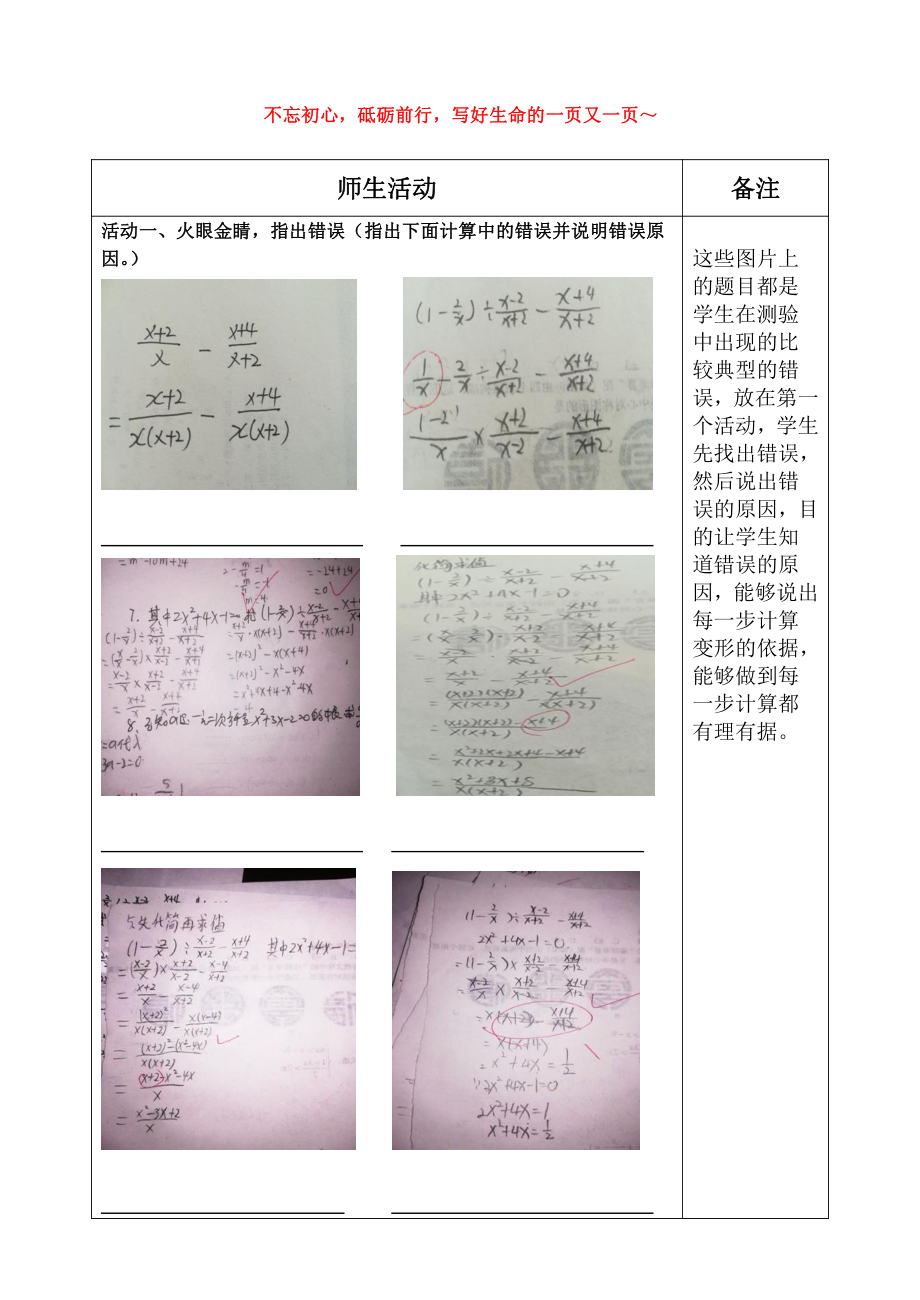 不忘初心，砥砺前行，写好生命的一页又一页～
师生活动
备注
活动一、火眼金睛，指出错误（指出下面计算中的错误并说明错误原
因。）
(x+2)/x - (x+4)/(x+2)
= (x+2)/(x(x+2)) - (x+4)/(x(x+2))
(1-2/x)÷(x-2)/(x+2)-(x+4)/(x+2)
1/x-2/x÷(x-2)/(x+2)-(x+4)/(x+2)
(1-2)/x×(x+2)/(x-2)-(x+4)/(x+2)
=m²-10m+24
=-24+24
=0
7. 其中2x²+4x-1=
(1-2/x)÷(x-2)/(x+2)-(x+4)/(x+2)
=(x/x-2/x)×(x+2)/(x-2)-(x+4)/(x+2)
=(x-2)/x×(x+2)/(x-2)-(x+4)/(x+2)
=(x+2)/x-(x+4)/(x+2)
=(x+2)/x·x(x+2)-(x+4)/(x+2)·x(x+2)
=(x+2)²-x(x+4)
=(x+2)²-x²-4x
=x²+4x+4-x²-4x
=4
3a-2=0
化简求值
(1-2/x)÷(x-2)/(x+2)-(x+4)/(x+2)
其中2x²+4x-1=0
=(x+2)/x-(x+4)/(x+2)
=((x+2)(x+2))/(x(x+2))-(x+4)/(x(x+2))
=((x+2)(x+2)-x+4)/(x(x+2))
=(x²+2x+2x+4-x+4)/(x(x+2))
=(x²+3x+8)/(x(x+2))
先化简再求值
(1-2/x)÷(x-2)/(x+2)-(x+4)/(x+2) 其中2x²+4x-1=
=((x-2)/x)×(x+2)/(x-2)-(x-4)/(x+2)
=(x+2)/x-(x-4)/(x+2)
=(x+2)²/(x(x+2))-x(x-4)/(x(x+2))
=((x+2)²-(x²-4x))/(x(x+2))
=(x+2-x²-4x)/x
=(x²-3x+2)/x
(1-2/x)÷(x-2)/(x+2)-(x+4)/(x+2)
2x²+4x-1=0
=(1-2/x)×(x+2)/(x-2)-(x+4)/(x+2)
=(x-2)/x×(x+2)/(x-2)-(x+4)/(x+2)
=x(x+2)-(x+4)/(x+2)
=x(x+4)
=x²+4x=1/2
∵2x²+4x-1=0
2x²+4x=1
x²+4x=1/2
这些图片上
的题目都是
学生在测验
中出现的比
较典型的错
误，放在第一
个活动，学生
先找出错误，
然后说出错
误的原因，目
的让学生知
道错误的原
因，能够说出
每一步计算
变形的依据，
能够做到每
一步计算都
有理有据。